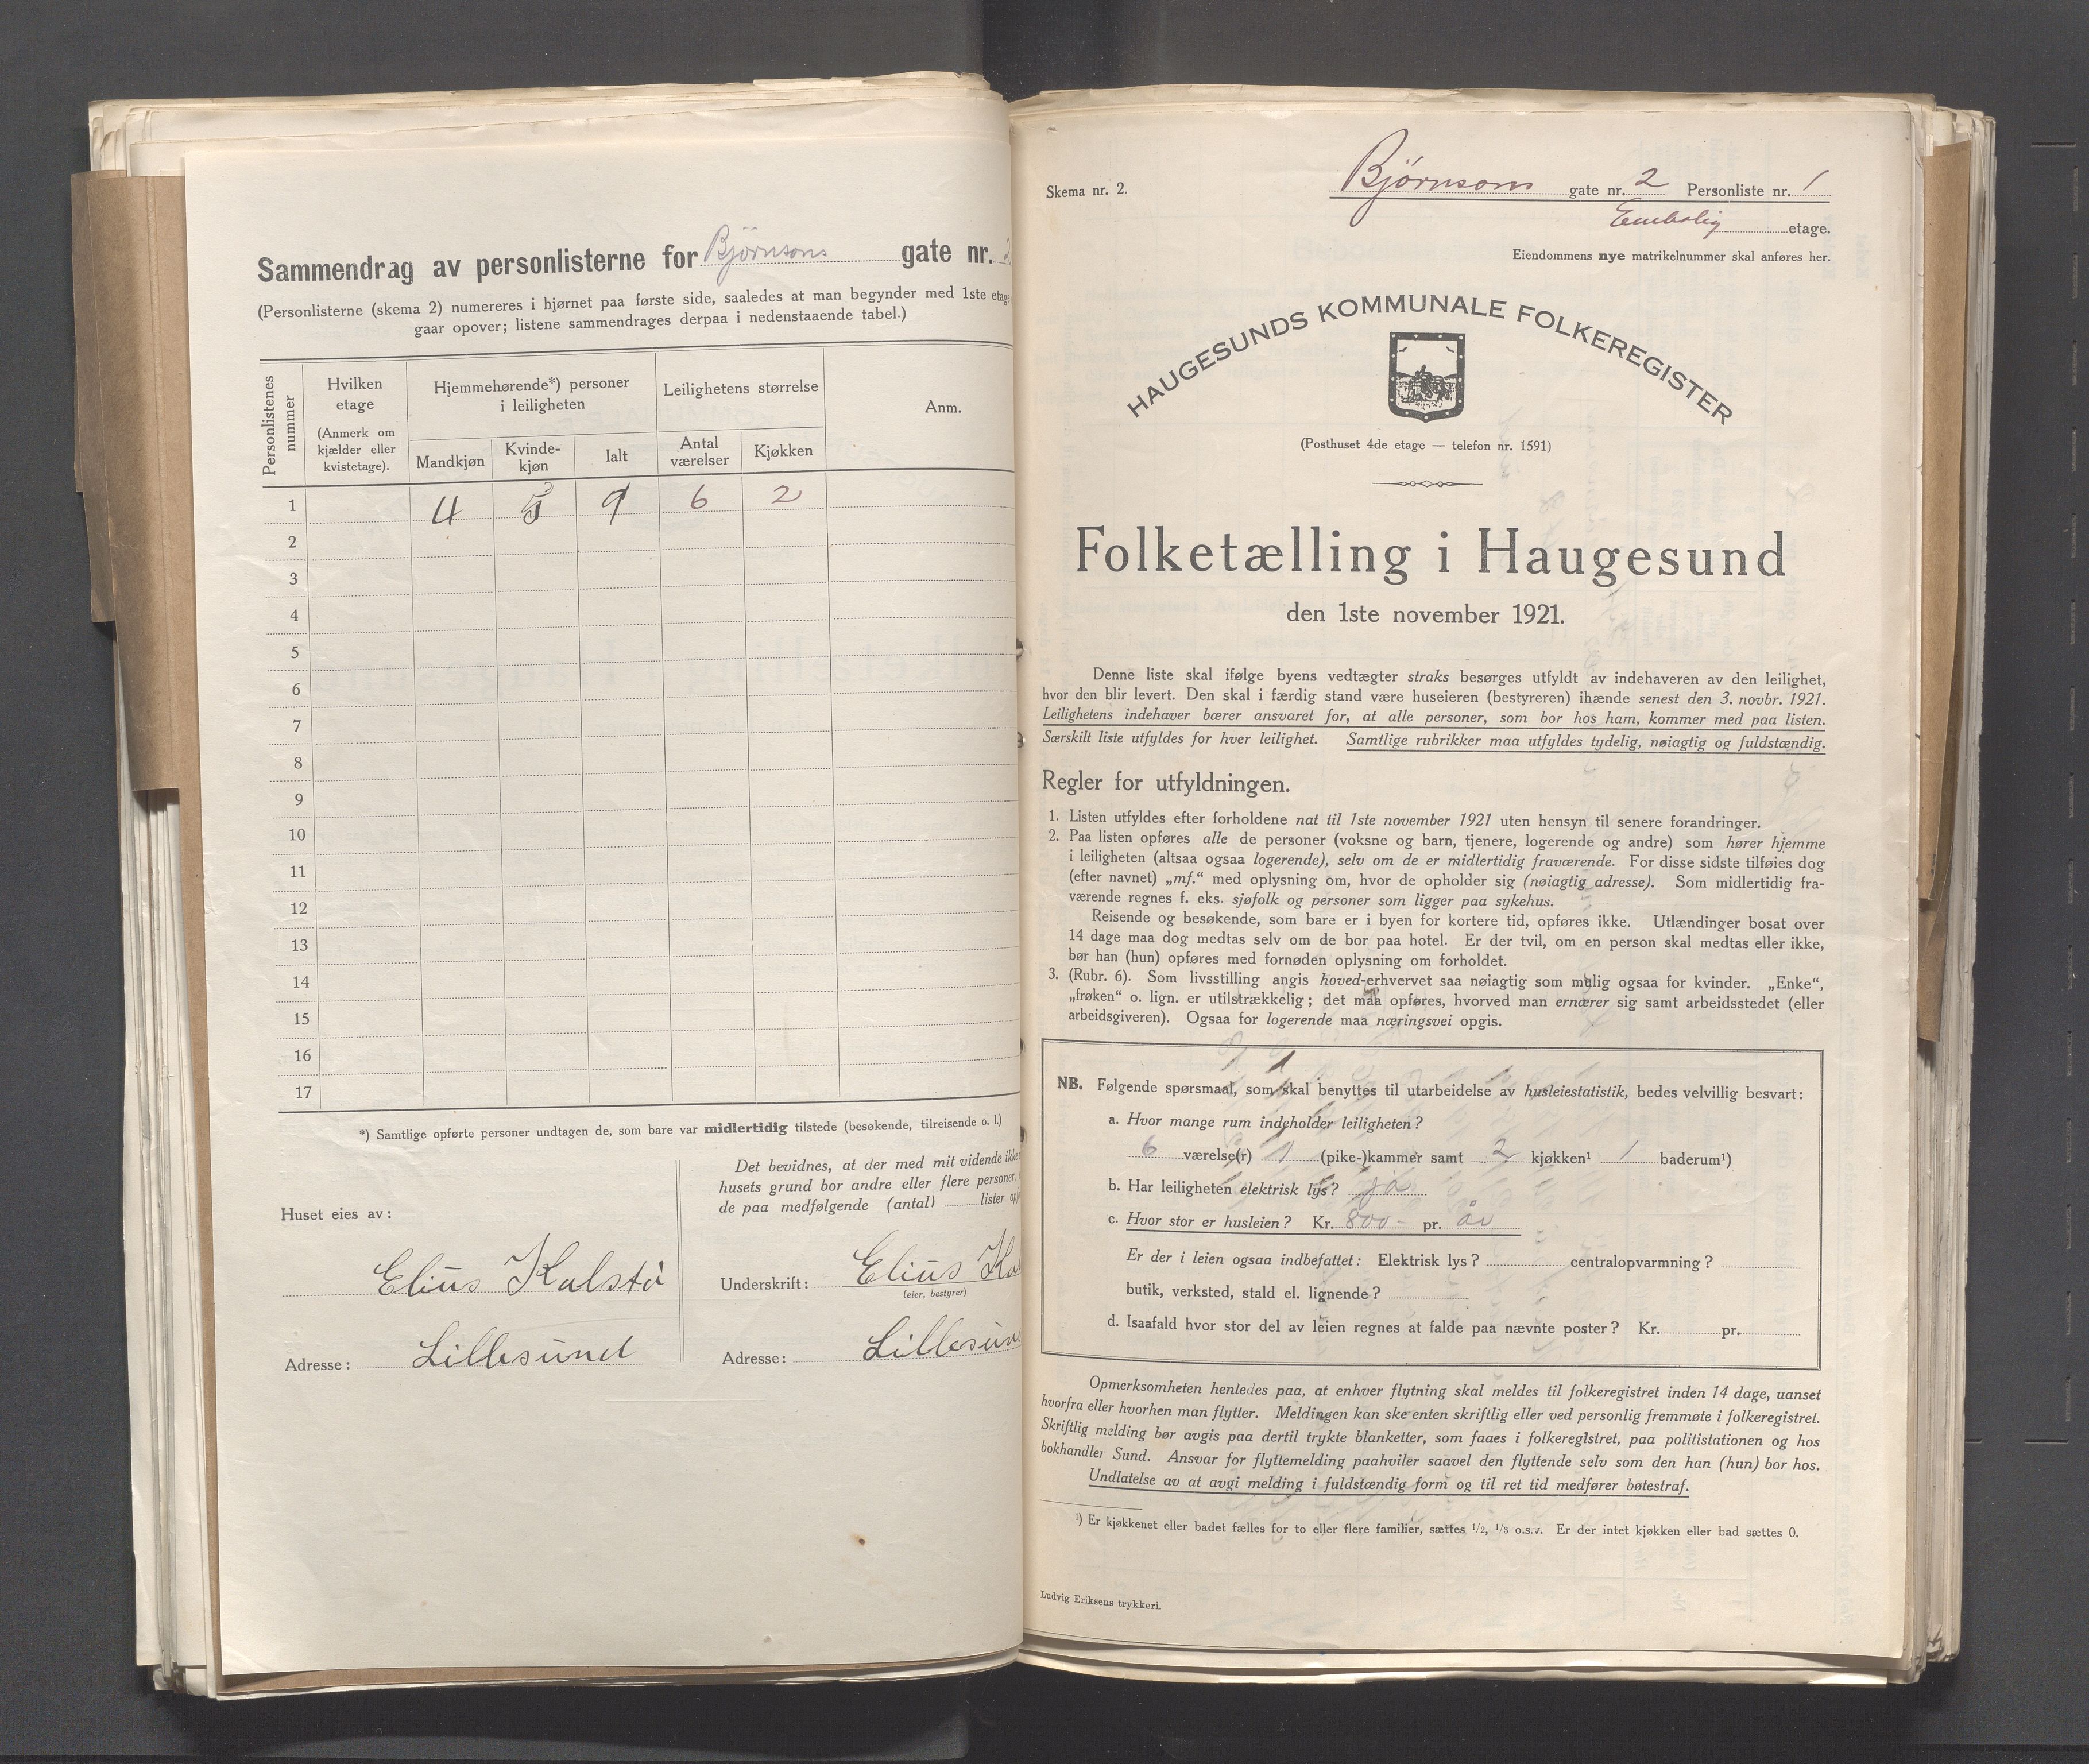 Sammendrag av personlisterne for Bjørnsons gate nr. 2
(Personlisterne (skema 2) numereres i hjørnet paa første side, saaledes at man begynder med 1ste etage
gaar opover; listene sammendrages derpaa i nedenstaaende tabel.)
Personlistenes nummer
Hvilken etage
(Anmerk om kjælder eller kvistetage).
Hjemmehørende*) personer i leiligheten
Mandkjøn
Kvindekjøn
Ialt
Leilighetens størrelse
Antal værelser
Kjøkken
Anm.
1 4 5 9 6 2
2
3
4
5
6
7
8
9
10
11
12
13
14
15
16
17
*) Samtlige opførte personer undtagen de, som bare var midlertidig tilstede (besøkende, tilreisende o. l.)
Huset eies av:
Elius Kalstø
Adresse: Lillesund
Det bevidnes, at der med mit vidende ikke
husets grund bor andre eller flere personer,
de paa medfølgende (antal) lister
Underskrift: Elius
(eier, bestyrer)
Adresse: Lillesund
Skema nr. 2.
Bjørnsons gate nr. 2 Personliste nr. 1
Enebolig etage.
Eiendommens nye matrikelnummer skal anføres her.
HAUGESUNDS KOMMUNALE FOLKEREGISTER
(Posthuset 4de etage — telefon nr. 1591)
Folketælling i Haugesund
den 1ste november 1921.
Denne liste skal ifølge byens vedtægter straks besørges utfyldt av indehaveren av den leilighet,
hvor den blir levert. Den skal i færdig stand være huseieren (bestyreren) ihænde senest den 3. novbr. 1921.
Leilighetens indehaver bærer ansvaret for, at alle personer, som bor hos ham, kommer med paa listen.
Særskilt liste utfyldes for hver leilighet. Samtlige rubrikker maa utfyldes tydelig, nøiagtig og fuldstændig.
Regler for utfyldningen.
1. Listen utfyldes efter forholdene nat til 1ste november 1921 uten hensyn til senere forandringer.
2. Paa listen opføres alle de personer (voksne og barn, tjenere, logerende og andre) som hører hjemme
i leiligheten (altsaa ogsaa logerende), selv om de er midlertidig fraværende. For disse sidste tilføies dog
(efter navnet) „mf.“ med oplysning om, hvor de opholder sig (nøiagtig adresse). Som midlertidig fra-
værende regnes f. eks. sjøfolk og personer som ligger paa sykehus.
Reisende og besøkende, som bare er i byen for kortere tid, opføres ikke. Utlændinger bosat over
14 dage maa dog medtas selv om de bor paa hotel. Er der tvil, om en person skal medtas eller ikke,
bør han (hun) opføres med fornøden oplysning om forholdet.
3. (Rubr. 6). Som livsstilling angis hoved-erhvervet saa nøiagtig som mulig ogsaa for kvinder. „Enke“,
„frøken“ o. lign. er utilstrækkelig; det maa opføres, hvorved man ernærer sig samt arbeidsstedet (eller
arbeidsgiveren). Ogsaa for logerende maa næringsvei opgis.
NB. Følgende spørsmaal, som skal benyttes til utarbeidelse av husleiestatistik, bedes velvillig besvart:
a. Hvor mange rum indeholder leiligheten?
6 værelse(r) 1 (pike-)kammer samt 2 kjøkken¹ 1 baderum¹)
b. Har leiligheten elektrisk lys? ja
c. Hvor stor er husleien? Kr. 800- pr. år
Er der i leien ogsaa indbefattet: Elektrisk lys? centralopvarmning?
butik, verksted, stald el. lignende?
d. Isaafald hvor stor del av leien regnes at falde paa nævnte poster? Kr. pr.
Opmerksomheten henledes paa, at enhver flytning skal meldes til folkeregistret inden 14 dage, uanset
hvorfra eller hvorhen man flytter. Meldingen kan ske enten skriftlig eller ved personlig fremmøte i folkeregistret.
Skriftlig melding bør avgis paa dertil trykte blanketter, som faaes i folkeregistret, paa politistationen og hos
bokhandler Sund. Ansvar for flyttemelding paahviler saavel den flyttende selv som den han (hun) bor hos.
Undlatelse av at avgi melding i fuldstændig form og til ret tid medfører bøtestraf.
¹) Er kjøkkenet eller badet fælles for to eller flere familier, sættes 1/2, 1/3 o.s.v. Er der intet kjøkken eller bad sættes 0.
Ludvig Eriksens trykkeri.